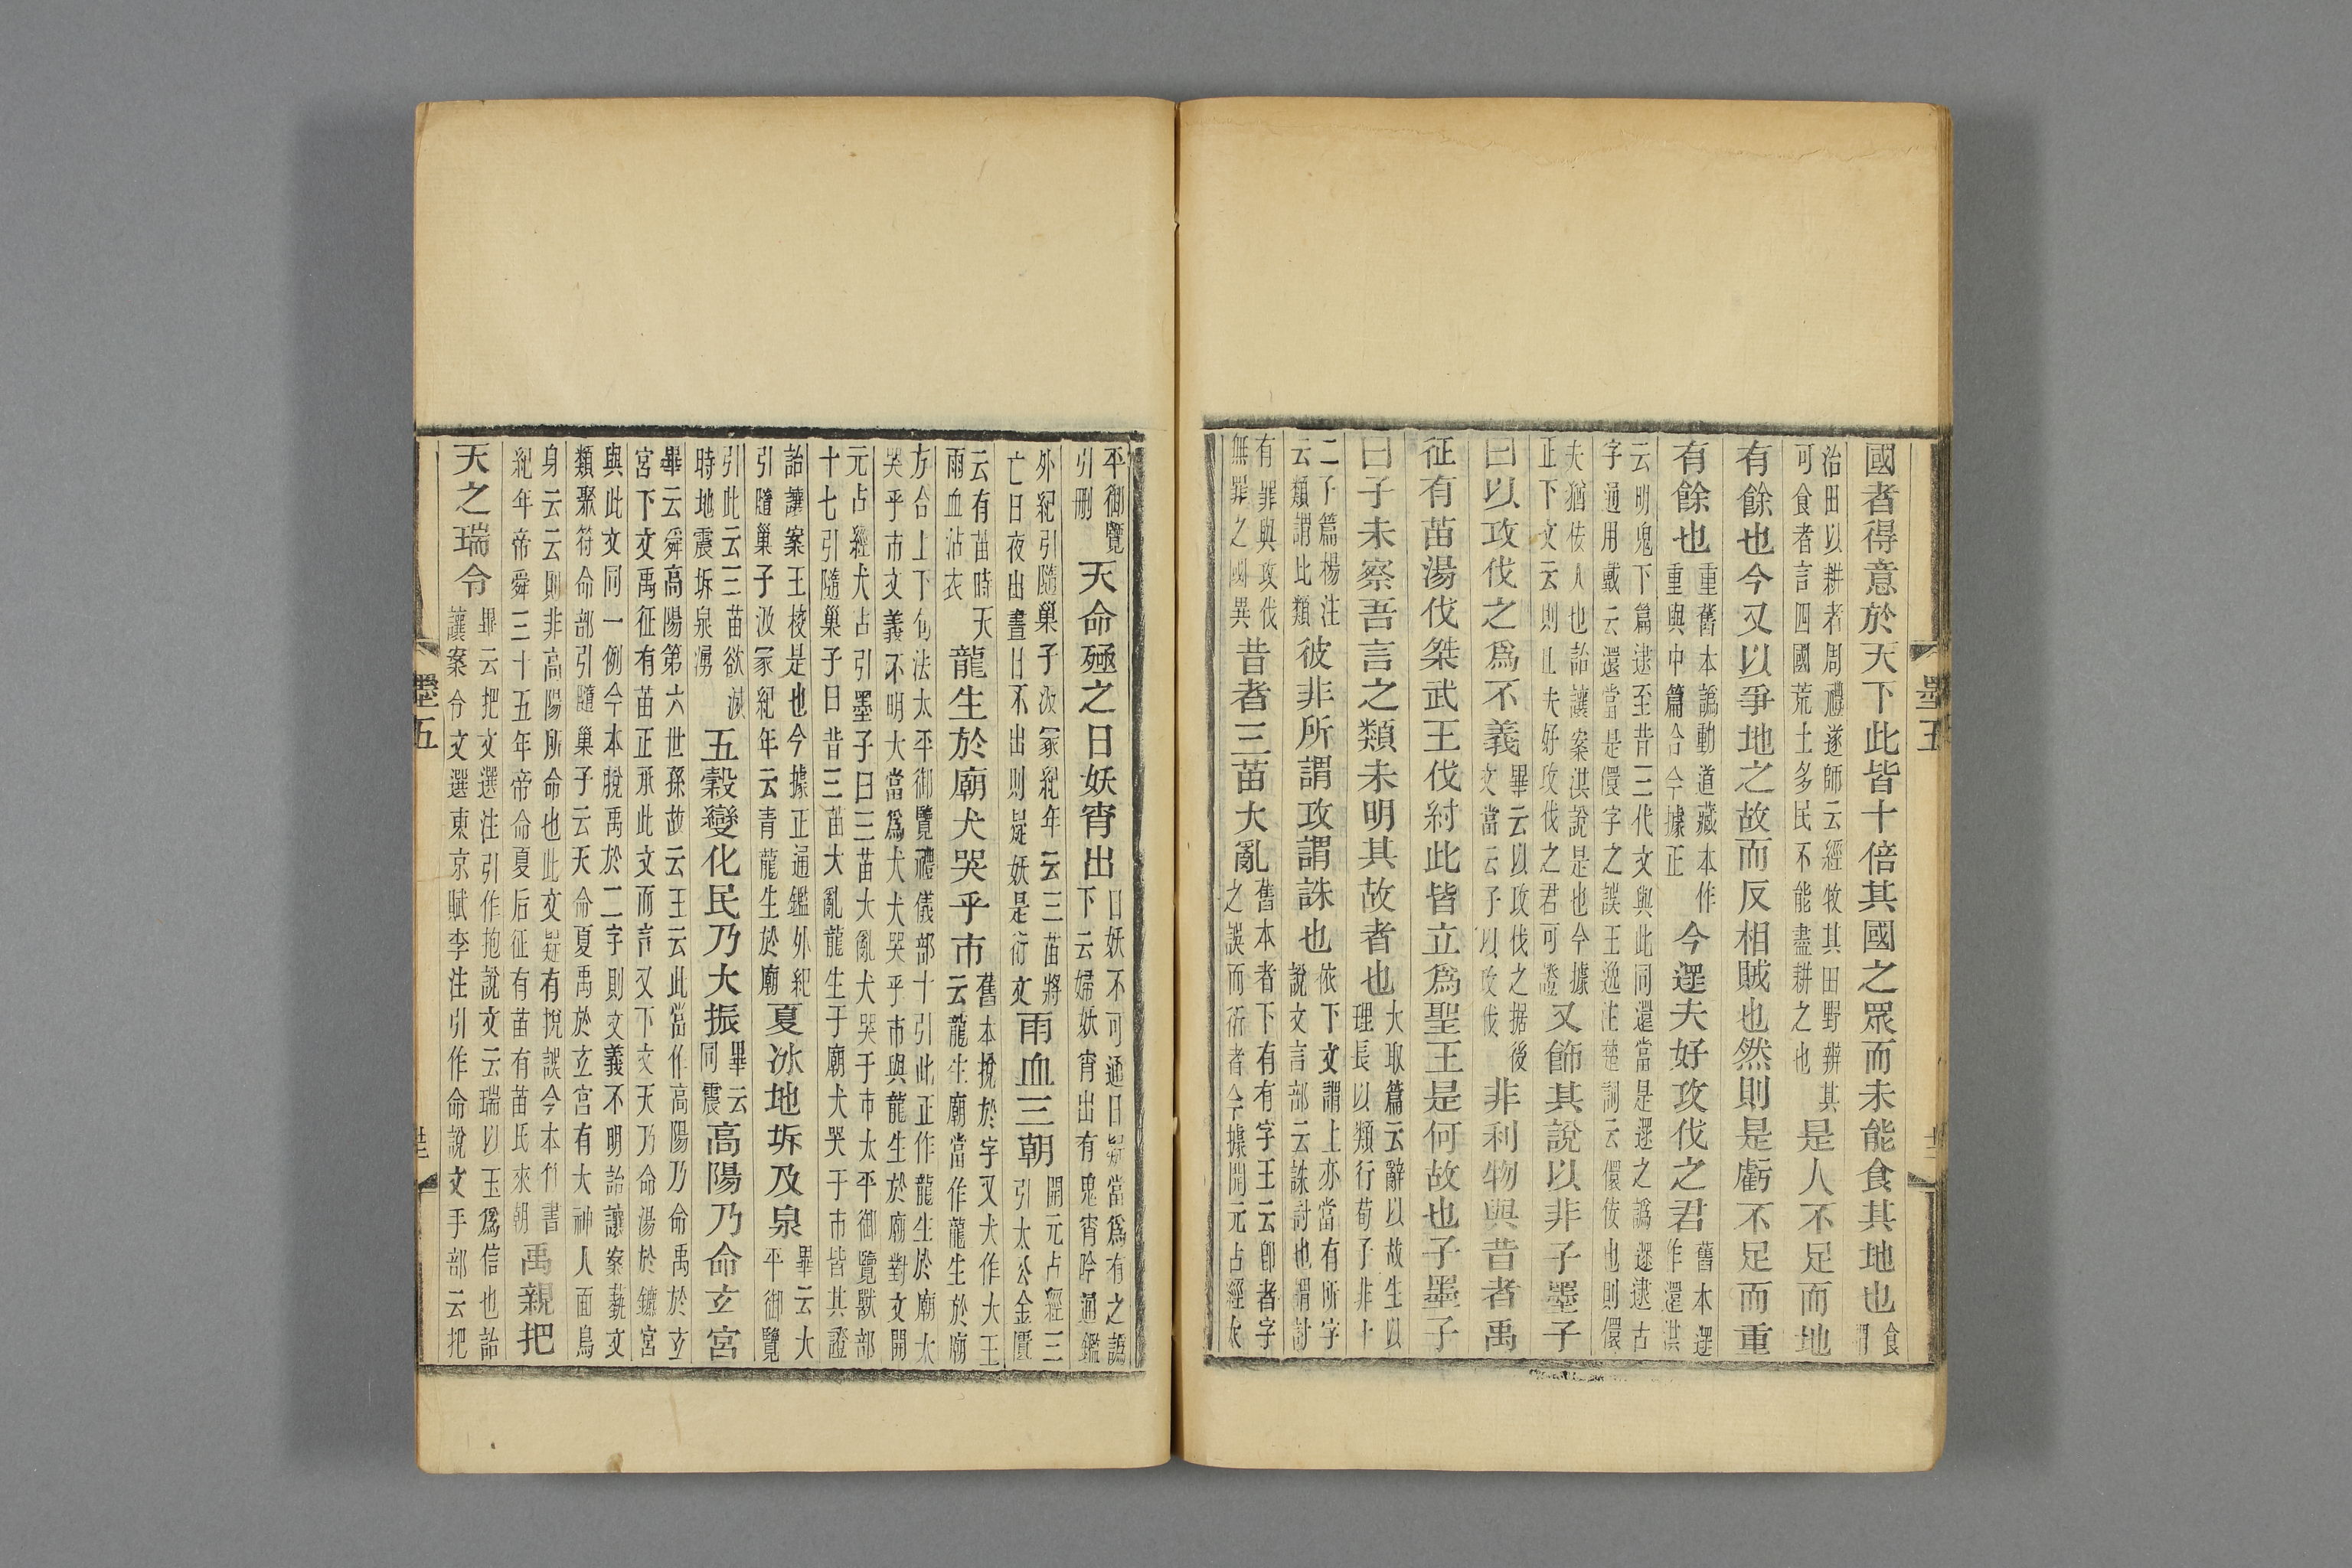 國者得意於天下此皆十倍其國之眾而未能食其地也食
謂
治田以耕者周禮遂師云經牧其田野辨其
可食者言四國荒土多民不能盡耕之也
是人不足而地
有餘也今又以爭地之故而反相賊也然則是虧不足而重
有餘也
重舊本譌動道藏本作
重與中篇合今據正
今遝夫好攻伐之君
舊本遝
作還洪
云明鬼下篇逮至昔三代文與此同還當是遝之譌遝逮古
字通用戴云還當是儇字之誤王逸注楚詞云儇佞也則儇
夫猶佞人也詒讓案洪說是也今據
正下文云則且夫好攻伐之君可證
又飾其說以非子墨子
曰以攻伐之爲不義
畢云以攻伐之据後
文當云子以攻伐
非利物與昔者禹
征有苗湯伐桀武王伐紂此皆立爲聖王是何故也子墨子
曰子未察吾言之類未明其故者也
大取篇云辭以故生以
理長以類行荀子非十
二子篇楊注
云類謂比類
彼非所謂攻謂誅也
依下文謂上亦當有所字
說文言部云誅討也謂討
有罪與攻伐
無罪之國異
昔者三苗大亂
舊本者下有有字王云卽者字
之誤而衍者今據開元占經太
墨五
平御覽
引刪
天命殛之日妖宵出
日妖不可通日疑當爲有之譌
下云婦妖宵出有鬼宵吟通鑑
外紀引隨巢子汲冢紀年云三苗將
亡日夜出晝日不出則疑妖是衍文
雨血三朝
開元占經三
引太公金匱
云有苗時天
雨血沾衣
龍生於廟犬哭乎市
舊本挩於字又犬作大王
云龍生廟當作龍生於廟
方合上下句法太平御覽禮儀部十引此正作龍生於廟大
哭乎市文義不明大當爲犬犬哭乎市與龍生於廟對文開
元占經犬占引墨子曰三苗大亂犬哭于市太平御覽獸部
十七引隨巢子曰昔三苗大亂龍生于廟犬哭于市皆其證
詒讓案王校是也今據正通鑑外紀
引隨巢子汲冢紀年云青龍生於廟
夏冰地坼及泉
畢云太
平御覽
引此云三苗欲滅
時地震坼泉湧
五穀變化民乃大振
畢云
同震
高陽乃命玄宮
畢云舜高陽第六世孫故云王云此當作高陽乃命禹於玄
宮下文禹征有苗正承此文而言又下文天乃命湯於鑣宮
與此文同一例今本脫禹於二字則文義不明詒讓案藝文
類聚符命部引隨巢子云天命夏禹於玄宮有大神人面鳥
身云云則非高陽所命也此文疑有挩誤今本竹書
紀年帝舜三十五年帝命夏后征有苗有苗氏來朝
禹親把
天之瑞令
畢云把文選注引作抱說文云瑞以玉爲信也詒
讓案令文選東京賦李注引作命說文手部云把
墨五